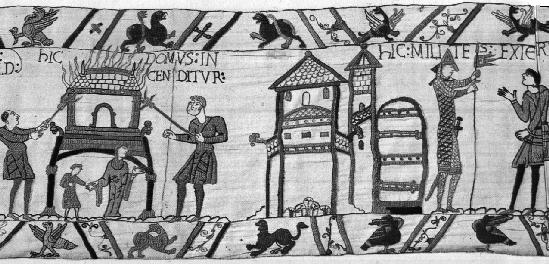 D: HIC DOMVS: IN
CENDITVR:
HIC: MILITES: EXIER